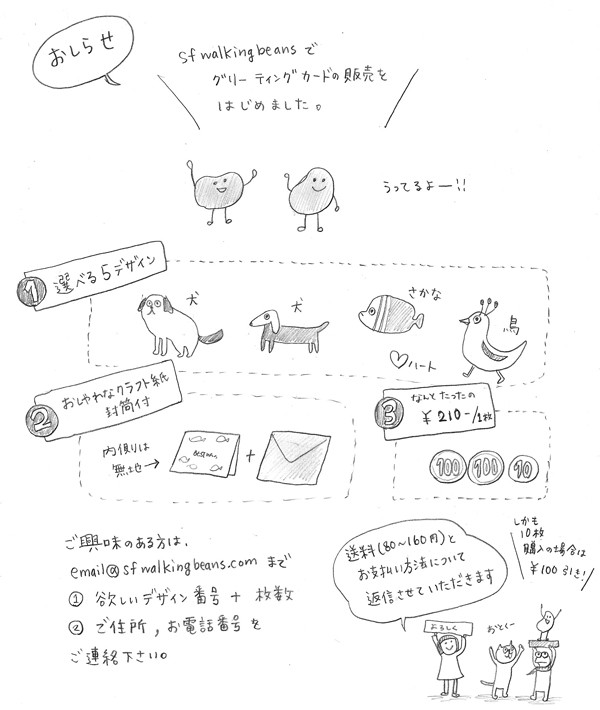 おしらせ
sfwalkingbeansで
グリーティングカードの販売を
はじめました。
うってるよー!!
1 選べる5デザイン
犬
犬
さかな
鳥
♡ハート
2 おしゃれなクラフト紙
封筒付
内側は
無地→
+
3 なんとたったの
¥210-/1枚
100 100 10
ご興味のある方は、
email@sfwalkingbeans.comまで
① 欲しいデザイン番号 + 枚数
② ご住所,お電話番号を
ご連絡下さい。
送料(80〜160円)と
お支払い方法について
返信させていただきます
しかも
10枚
購入の場合は
¥100引き!
よろしく
おとくー